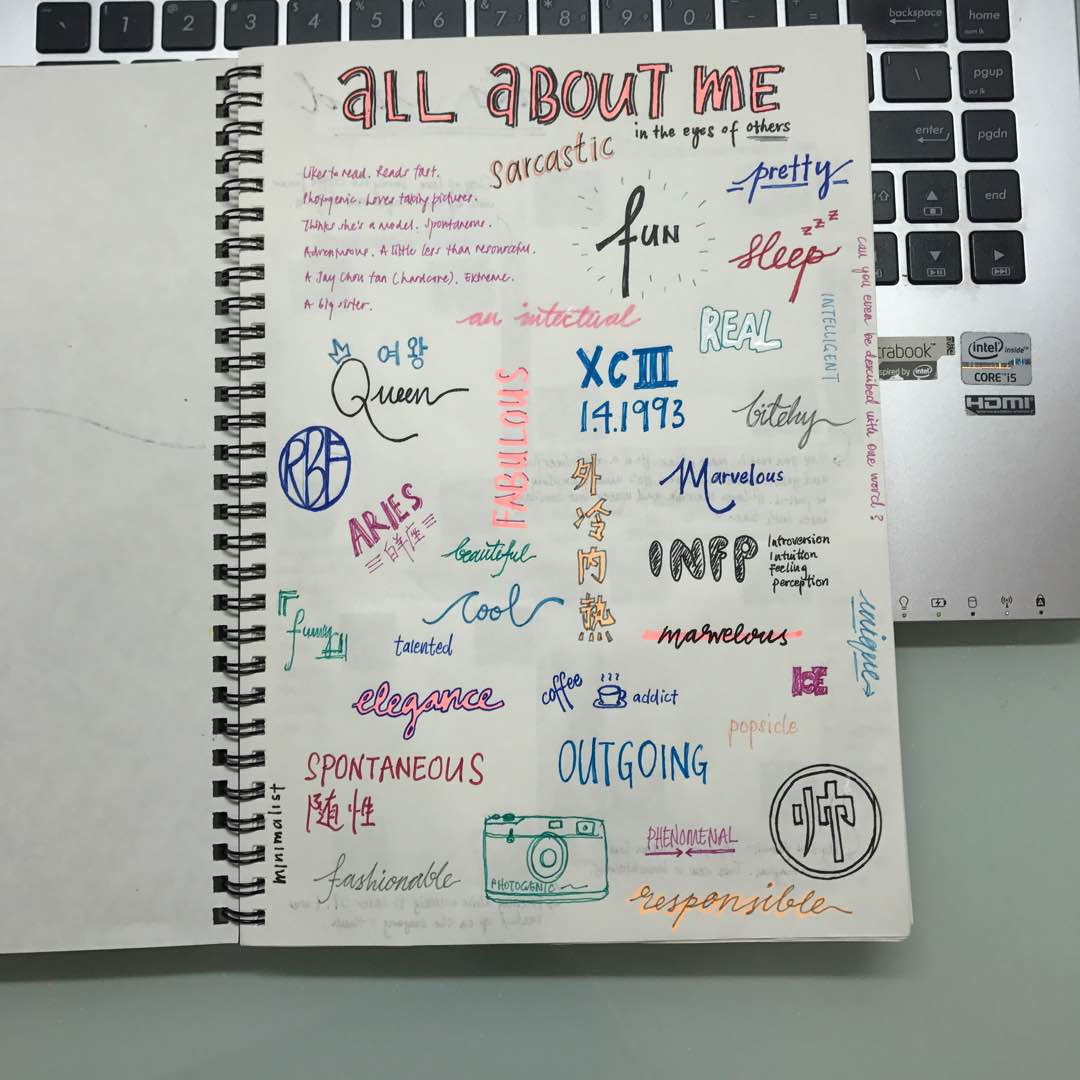 ALL ABOUT ME
in the eyes of others
sarcastic
pretty
Likes to read. Reads fast.
Photogenic. Loves taking pictures.
Thinks she's a model. Spontaneous.
Adventurous. A little less than resourceful.
A Jay Chou fan (hardcore). Extreme.
A big sister.
fun
zzz
sleep
can you even be described with one word?
an intectual
REAL
INTELLIGENT
여왕
Queen
FABULOUS
XCIII
1.4.1993
bitchy
RBF
ARIES
白羊座
外冷内熱
Marvelous
beautiful
INFP
Introversion
Intuition
Feeling
perception
funny
cool
talented
marvelous
unique
elegance
coffee
addict
ICE
popsicle
SPONTANEOUS
随性
OUTGOING
minimalist
帅
PHENOMENAL
fashionable
PHOTOGENIC
responsible
1
2
3
4
5
6
7
8
9
0
backspace
home
num lk
\
pgup
scr lk
enter
pgdn
end
trabook
inspired by intel
intel inside
CORE i5
HDMI